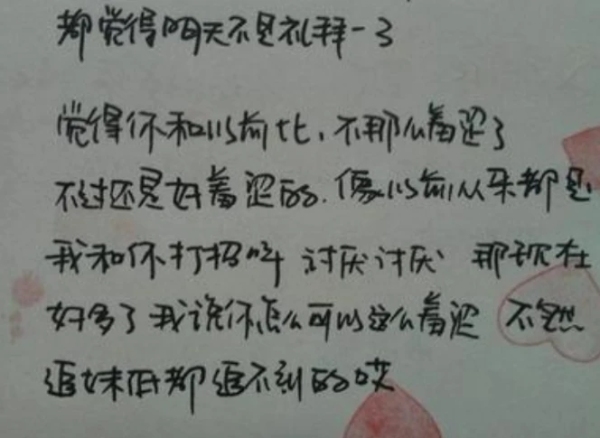 都觉得明天不是礼拜一了
觉得你和以前比、不那么羞涩了
不过还是好羞涩的.像以前从来都是
我和你打招呼 讨厌讨厌 那现在
好多了 我说你怎么可以这么羞涩 不然
追妹低都追不到的哎